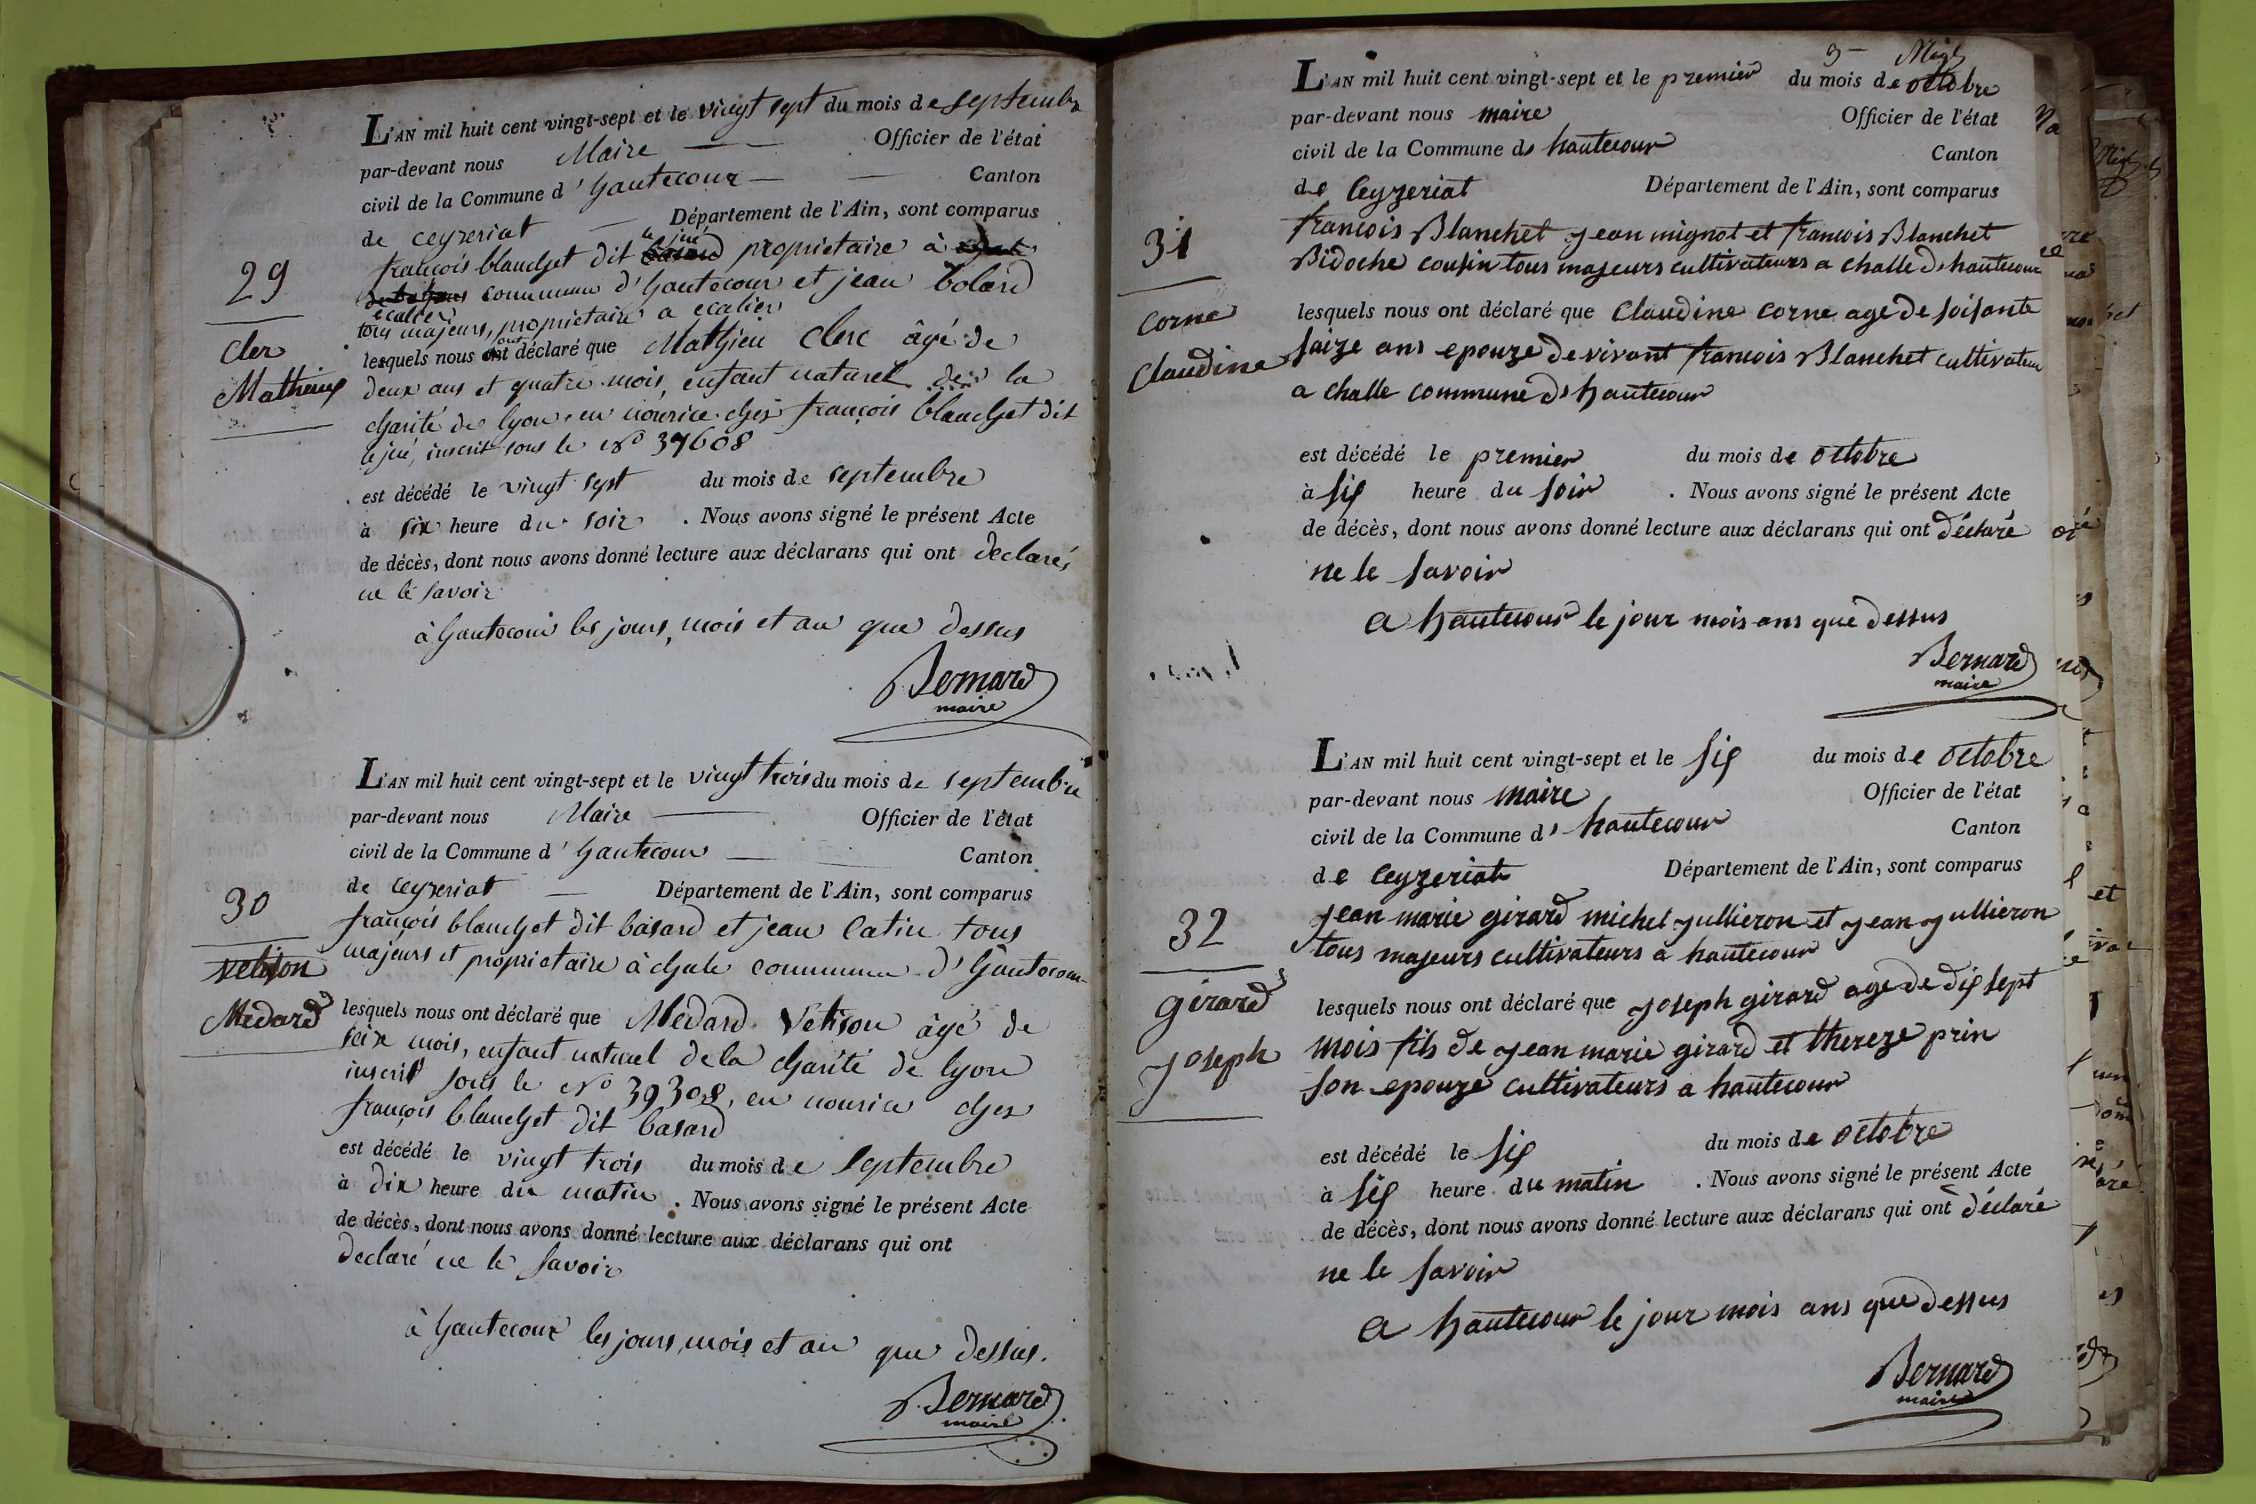 L'AN mil huit cent vingt-sept et le vingt sept du mois de septembre
par-devant nous Maire Officier de l'état
civil de la Commune d'hautecour Canton
de ceyzeriat Département de l'Ain, sont comparus
29
françois blanchet dit le jué propriétaire à
commune d'hautecour et jean bolard
ecalier
tous majeurs, propriétaire a ecalier
Cler
Mathieux
lesquels nous ont déclaré que Mathieu Clerc âgé de
deux ans et quatre mois, enfant naturel de la
charité de lyon, en nourice chez françois blanchet dit
le jué, inscrit sous le No 37608
est décédé le vingt sept du mois de septembre
à six heure du soir . Nous avons signé le présent Acte
de décès, dont nous avons donné lecture aux déclarans qui ont declarés
ne le savoir
à hautecour les jours, mois et an que dessus
Bernard
maire
L'AN mil huit cent vingt-sept et le vingt trois du mois de septembre
par-devant nous Maire Officier de l'état
civil de la Commune d'hautecour Canton
de ceyzeriat Département de l'Ain, sont comparus
30
françois blanchet dit basard et jean Catin tous
majeurs et propriétaire à chale commune d'hautecour
velison
Medard
lesquels nous ont déclaré que Medard Velison âgé de
seize mois, enfant naturel de la charité de lyon
inscrit sous le No 39308, en nourice chez
françois blanchet dit basard
est décédé le vingt trois du mois de septembre
à dix heure du matin . Nous avons signé le présent Acte
de décès, dont nous avons donné lecture aux déclarans qui ont
declaré ne le savoir
à hautecour les jours, mois et an que dessus.
Bernard
maire
L'AN mil huit cent vingt-sept et le premier du mois de octobre
par-devant nous maire Officier de l'état
civil de la Commune de hautecour Canton
de Ceyzeriat Département de l'Ain, sont comparus
31
francois Blanchet jean mignot et francois Blanchet
Bidoche cousin tous majeurs cultivateurs a challe d'hautecour
corne
Claudine
lesquels nous ont déclaré que Claudine corne age de soisante
saize ans epouze de vivant francois Blanchet cultivateur
a challe commune d'hautecour
est décédé le premier du mois de octobre
à sis heure du soir . Nous avons signé le présent Acte
de décès, dont nous avons donné lecture aux déclarans qui ont déclaré
ne le savoir
a hautecour le jour mois ans que dessus
Bernard
maire
L'AN mil huit cent vingt-sept et le sis du mois de octobre
par-devant nous maire Officier de l'état
civil de la Commune d'hautecour Canton
de Ceyzeriat Département de l'Ain, sont comparus
32
jean marie girard michel jullieron et jean jullieron
tous majeurs cultivateurs a hautecour
girard
joseph
lesquels nous ont déclaré que joseph girard age de dis sept
mois fils de jean marie girard et thereze prin
son epouze cultivateurs a hautecour
est décédé le sis du mois de octobre
à sis heure du matin . Nous avons signé le présent Acte
de décès, dont nous avons donné lecture aux déclarans qui ont déclaré
ne le savoir
a hautecour le jour mois ans que dessus
Bernard
maire